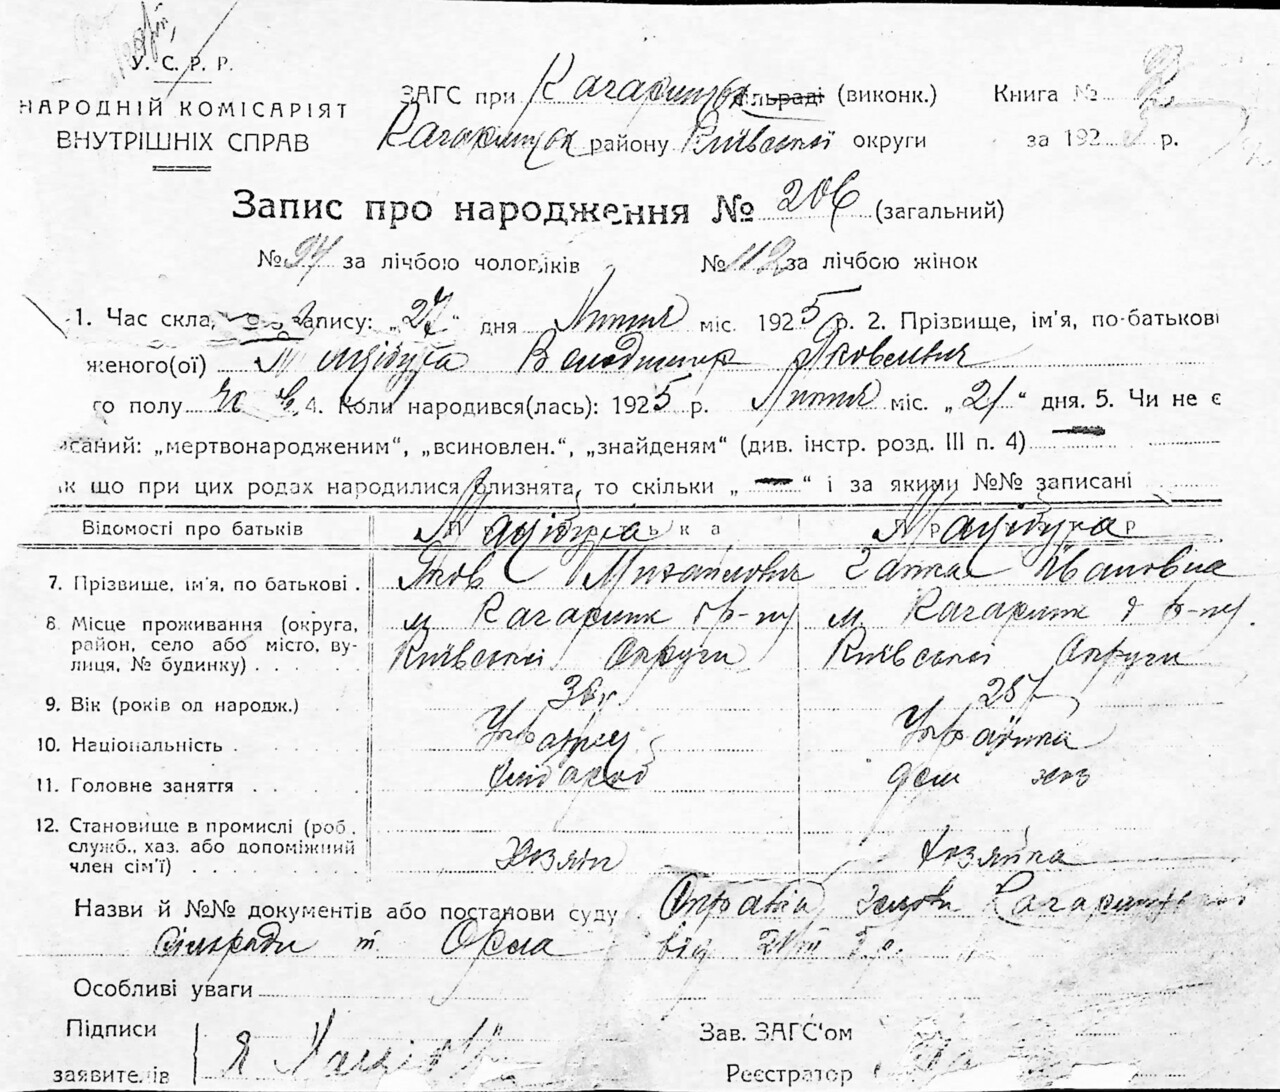 У. С. Р. Р.
НАРОДНІЙ КОМІСАРІЯТ
ВНУТРІШНІХ СПРАВ
ЗАГС при Кагарлицьк сільраді (виконк.) Книга № 2
Кагарлицьк району Київської округи за 1925 р.
Запис про народження № 206 (загальний)
№ 94 за лічбою чоловіків № 112 за лічбою жінок
1. Час скла запису: „27“ дня Липня міс. 1925 р. 2. Прізвище, ім'я, по-батькові
женого(ої) Мацібура Володимир Яковлевич
го полу 4. Коли народився(лась): 1925 р. Липня міс. „21“ дня. 5. Чи не є
исаний: „мертвонародженим“, „всиновлен.“, „знайденям“ (див. інстр. розд. III п. 4)
як що при цих родах народилися близнята, то скільки „—“ і за якими №№ записані
Відомості про батьків
Про батька Про матір
Мацібура Мацібура
7. Прізвище, ім'я, по батькові . Яков Михайлович Ганна Івановна
8. Місце проживання (округа, район, село або місто, вулиця, № будинку) . . . .
м Кагарлик р-ну м Кагарлик р-ну
Київської Округи Київської Округи
9. Вік (років од народж.) . 25
10. Національність . . . . Українец Українка
11. Головне заняття . . . . . хлібороб дом хоз
12. Становище в промислі (роб., служб., хаз. або допоміжний член сім'ї) . . . . . . . Хозяїн Хозяйка
Назви й №№ документів або постанови суду Кагарлицької
сільради від
Особливі уваги
Підписи Зав. ЗАГС'ом
заявителів Я Реєстратор